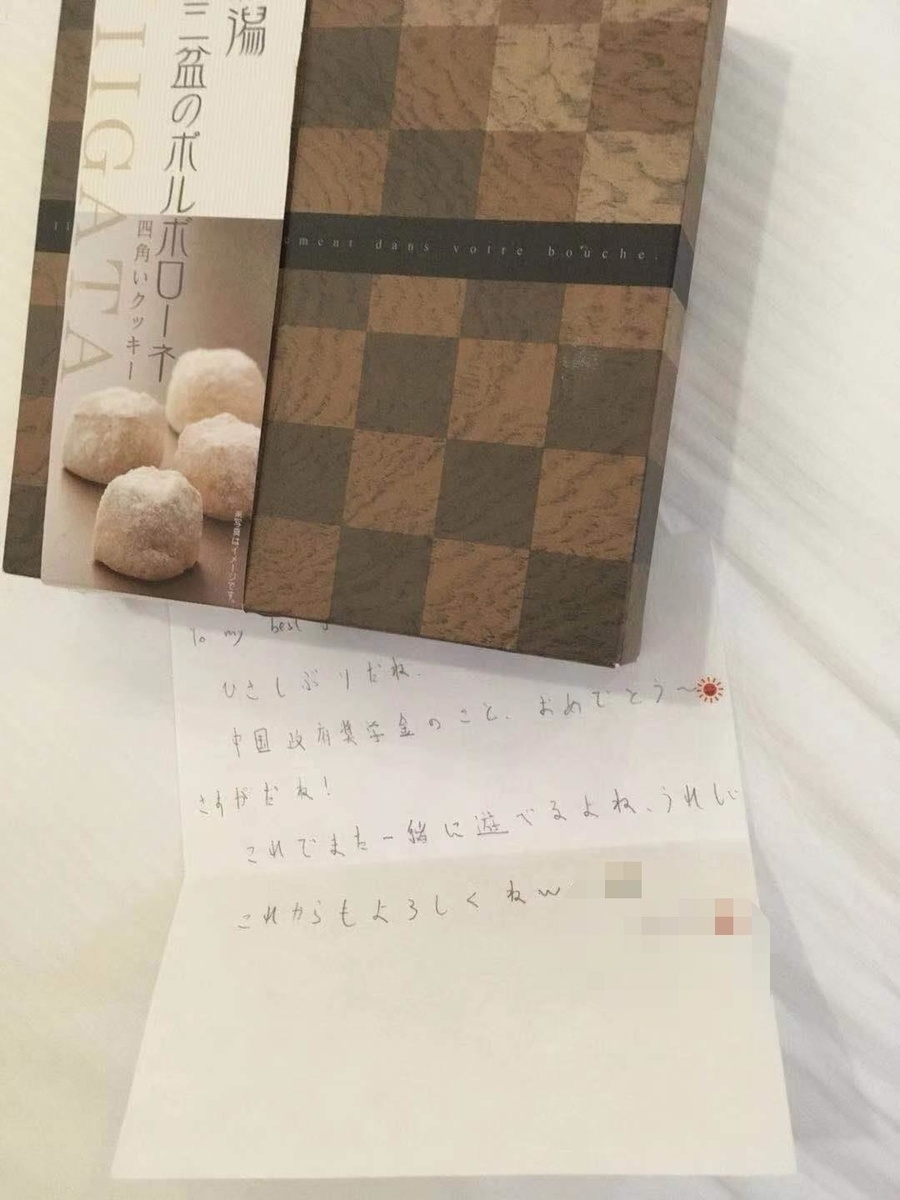 潟
三盆のボルボローネ
四角いクッキー
IIGATA
ument dans votre bouche.
※写真はイメージです。
To my best
ひさしぶりだね.
中国政府奨学金のこと、おめでとう〜
さすがだね!
これでまた一緒に遊べるよね、うれしい
これからもよろしくねw